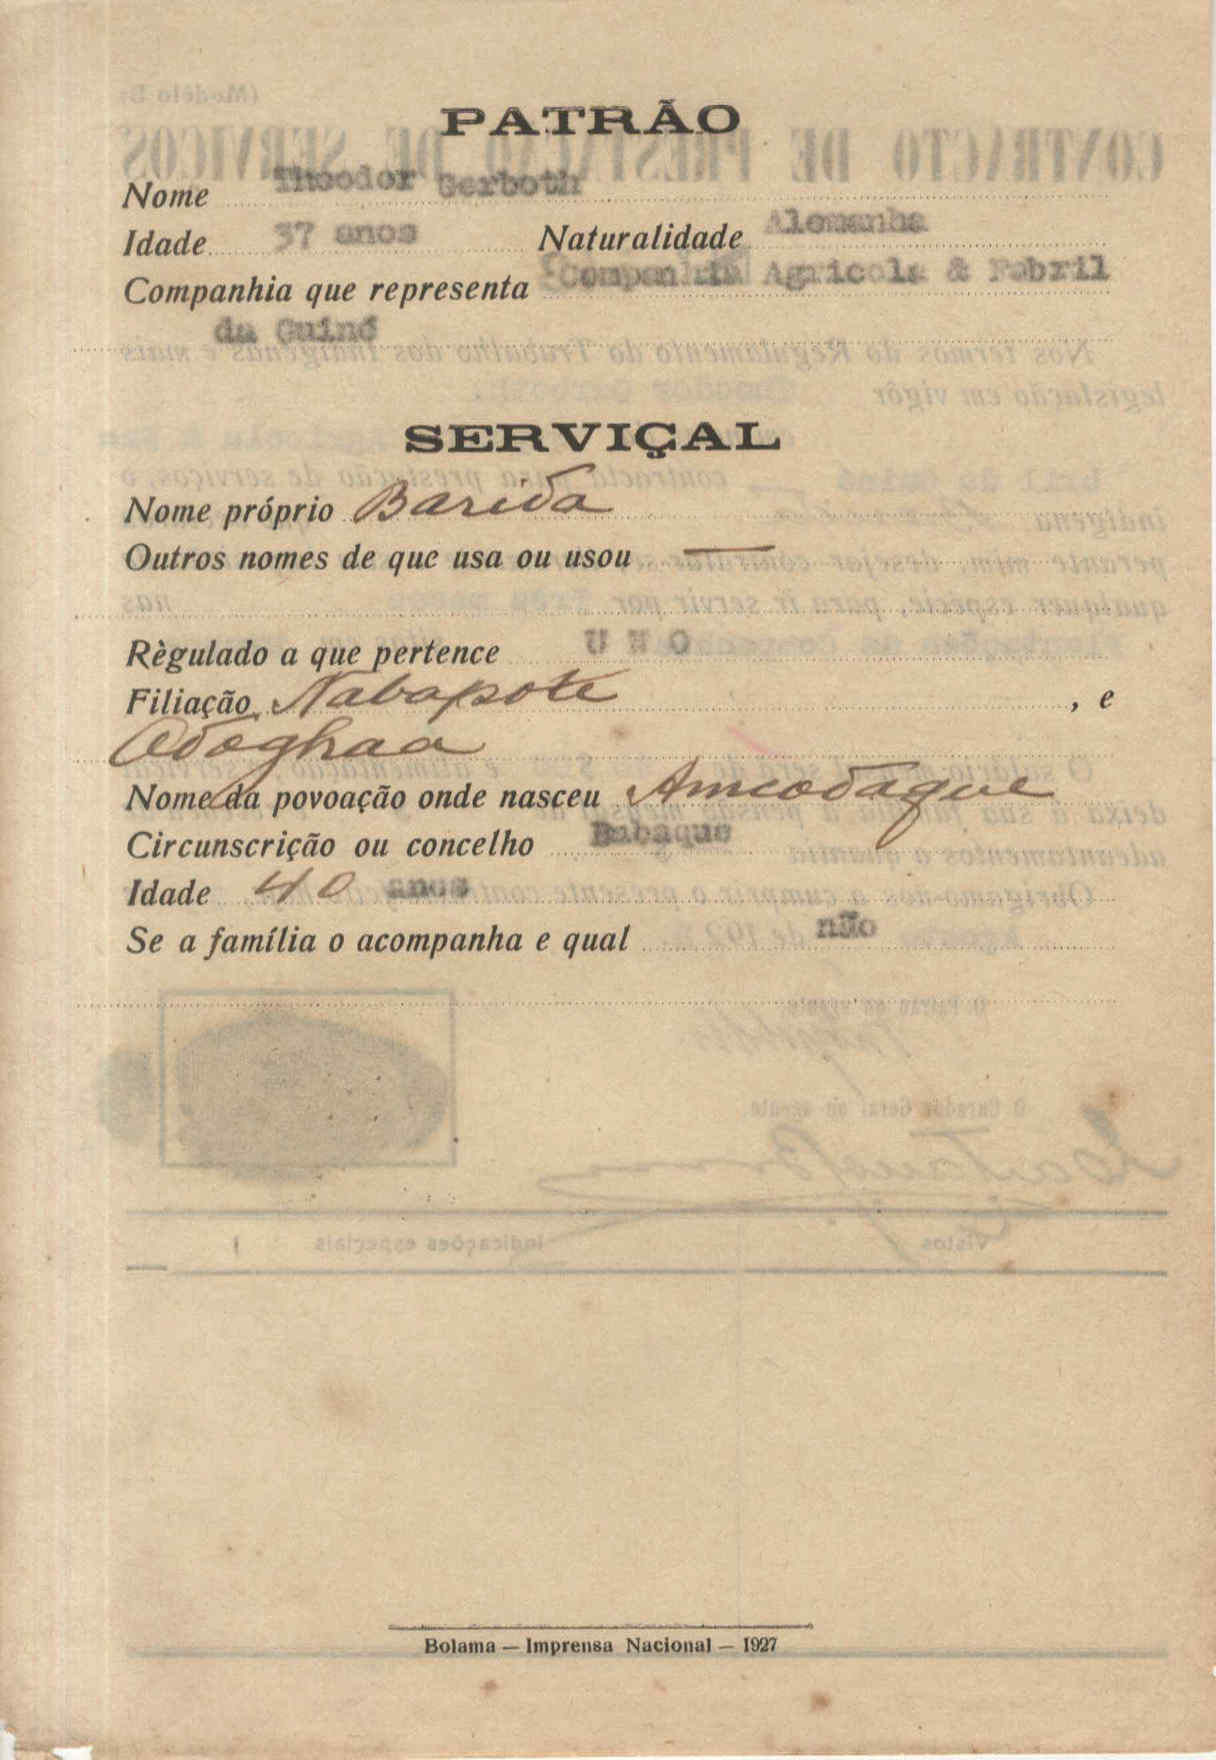 PATRÃO
Nome Theodor Gerboth
Idade 37 anos Naturalidade Alemanha
Companhia que representa Companhia Agricola & Fabril
da Guiné
SERVIÇAL
Nome próprio Barida
Outros nomes de que usa ou usou —
Règulado a que pertence U N O
Filiação Nabapote, e
Odoghaa
Nome da povoação onde nasceu Amcodaque
Circunscrição ou concelho Babaque
Idade 40 anos
Se a família o acompanha e qual não
Bolama — Imprensa Nacional — 1927